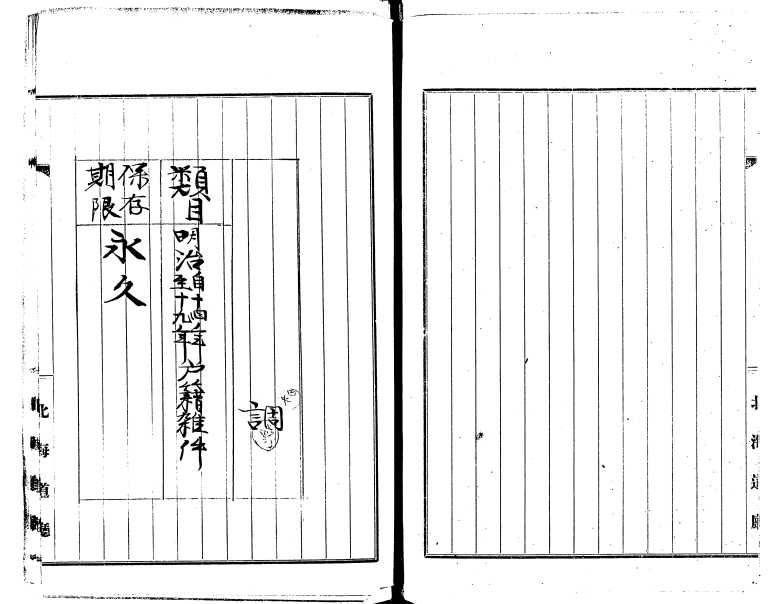 北海道廳
調
類目
明治自十四年至十九年戸籍雑件
保存期限
永久
北海道廳